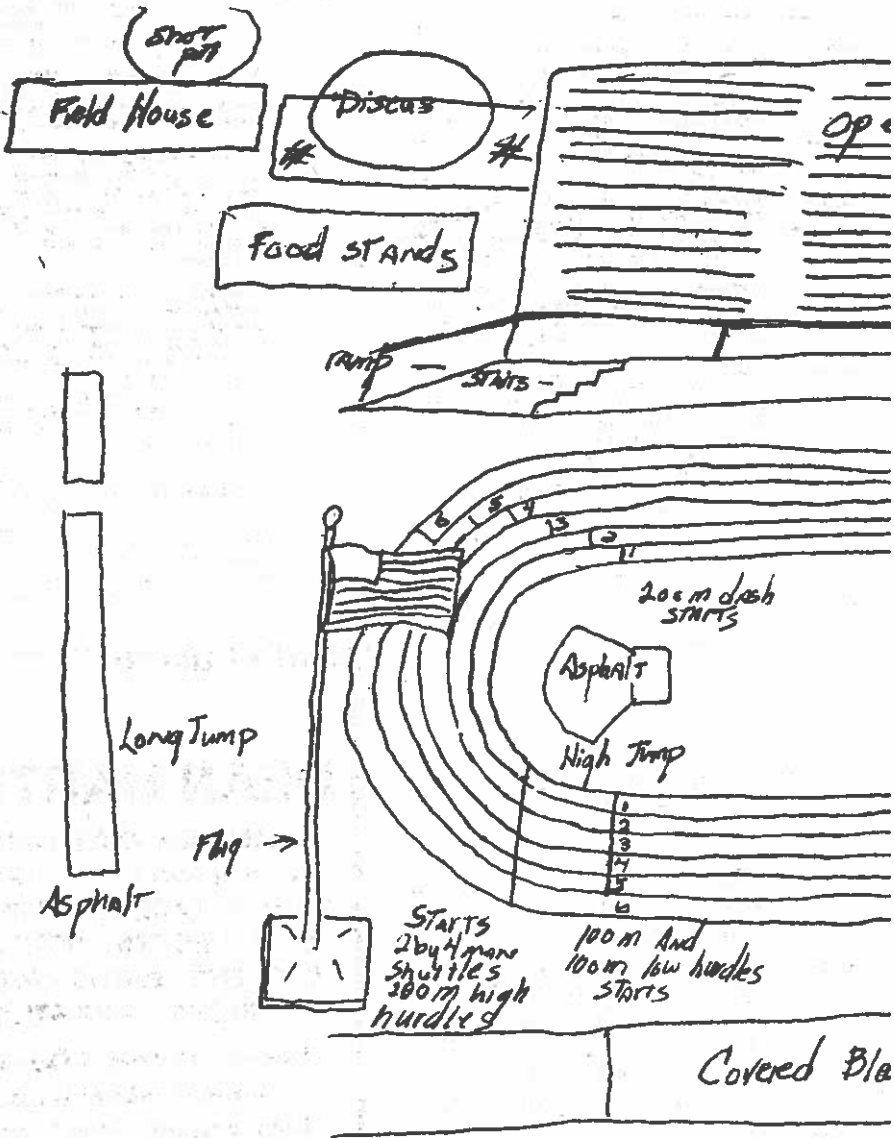 Shot
put
Field House
Discus
Op
Food STANds
ramp
STAirs
6
5
4
3
2
1
200m dash
STARTS
Asphalt
High Jump
Long Jump
Flag
Asphalt
1
2
3
4
5
6
STARTS
2 by 4 man
shuttles
100m high
hurdles
100m And
100m low hurdles
STARTS
Covered Blea